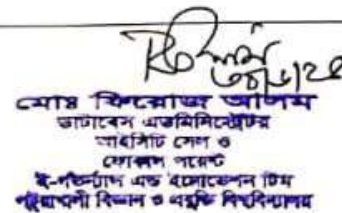 মোঃ ফিরোজ আলম
ডাটাবেস এডমিনিস্ট্রেটর
আইসিটি সেল ও
ফোকাল পয়েন্ট
ই-গভর্ন্যান্স এন্ড ইনোভেশন টিম
পটুয়াখালী বিজ্ঞান ও প্রযুক্তি বিশ্ববিদ্যালয়